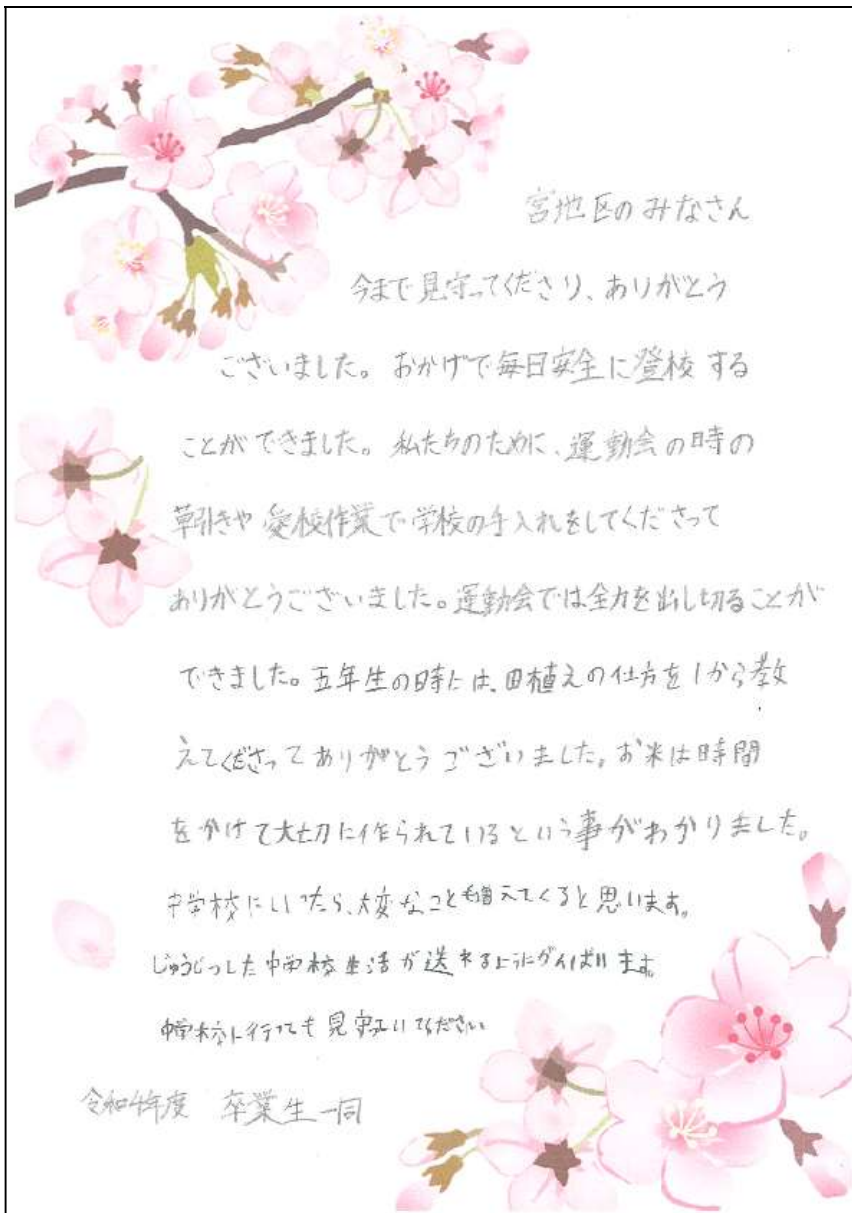 宮地区のみなさん
今まで見守ってくださり、ありがとう
ございました。おかげで毎日安全に登校する
ことができました。私たちのために、運動会の時の
草引きや愛校作業で学校の手入れをしてくださって
ありがとうございました。運動会では全力を出し切ることが
できました。五年生の時には、田植えの仕方を1から教
えてくださってありがとうございました。お米は時間
をかけて大切に作られているという事がわかりました。
中学校にいったら、大変なことも増えてくると思います。
じゅうじつした中学校生活が送れるようにがんばります。
中学校に行っても見守っていてください
令和4年度 卒業生一同